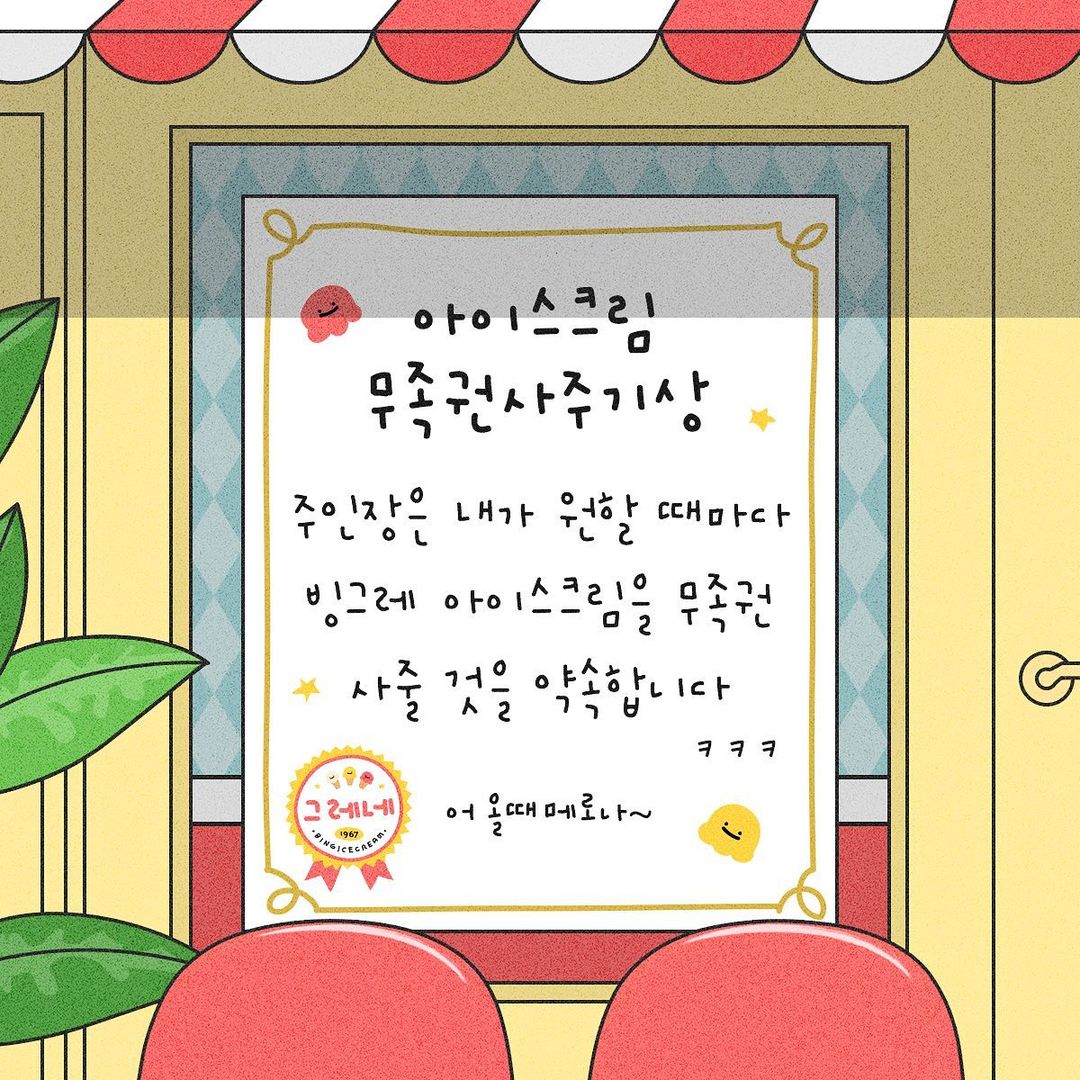 아이스크림
무족권사주기상
주인장은 내가 원할 때마다
빙그레 아이스크림을 무족권
사줄 것을 약속합니다
ㅋㅋㅋ
그레네
1967
BINGICECREAM
어 올때메로나~